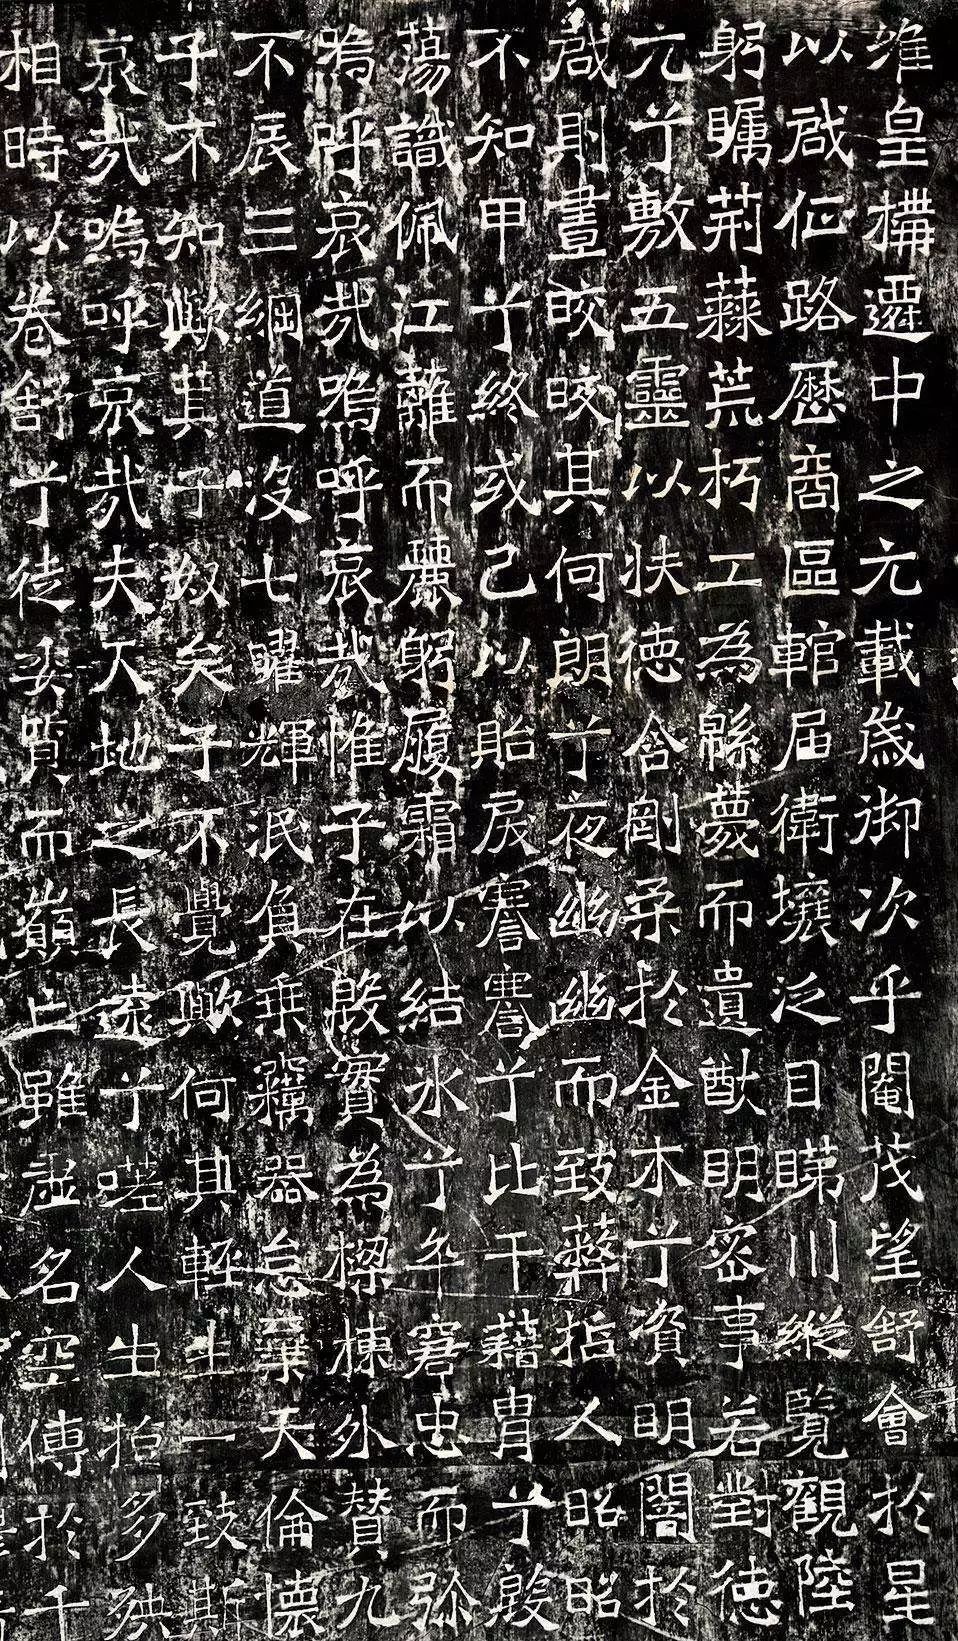 維皇構遷中之元載歲御次乎閹茂望舒會於星
以咸位路歷商區輨屆衛壤泛目睇川縱覽觀陸
躬矚荊蕀荒朽工為緜蔑而遺猷明密事若對德
元兮敷五靈以扶德含剛柔於金木兮資明闇於
咸則晝皎皎其何朗兮夜幽幽而致蔽哲人昭昭
不知甲兮終或己以貽戾謇謇兮比干藉胄兮殷
蕩識佩江蘺而麗躬履霜以結冰兮卒窘忠而彌
嗚呼哀哉嗚呼哀哉惟子在殷實為樑棟外贊九
不辰三綱道沒七曜輝泯負乘竊器怠棄天倫懷
子不知歟其子奴矣子不覺歟何其輕生一致斯
哀哉嗚呼哀哉夫天地之長遠兮嗟人生哲多殃
相時以卷舒兮徒委質而巔亡雖虛名空傳於千